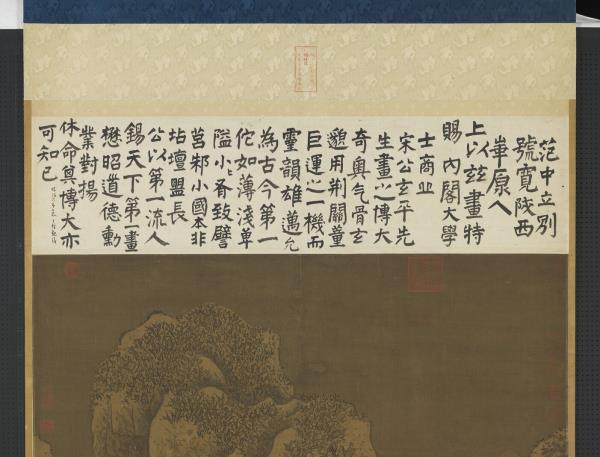 范中立別
號寬陝西
華原人
上以茲畫特
賜內閣大學
士商丘
宋公玄平先
生畫以博大
奇奧氣骨玄
邈用荊關董
巨運以一機而
靈韻雄邁允
為古今第一
佗如薄淺單
隘小〻致譬
莒邾小國本非
坫壇盟長
公以第一流人
錫天下第一畫
懋昭道德勳
業對揚
休命其博大亦
可知已